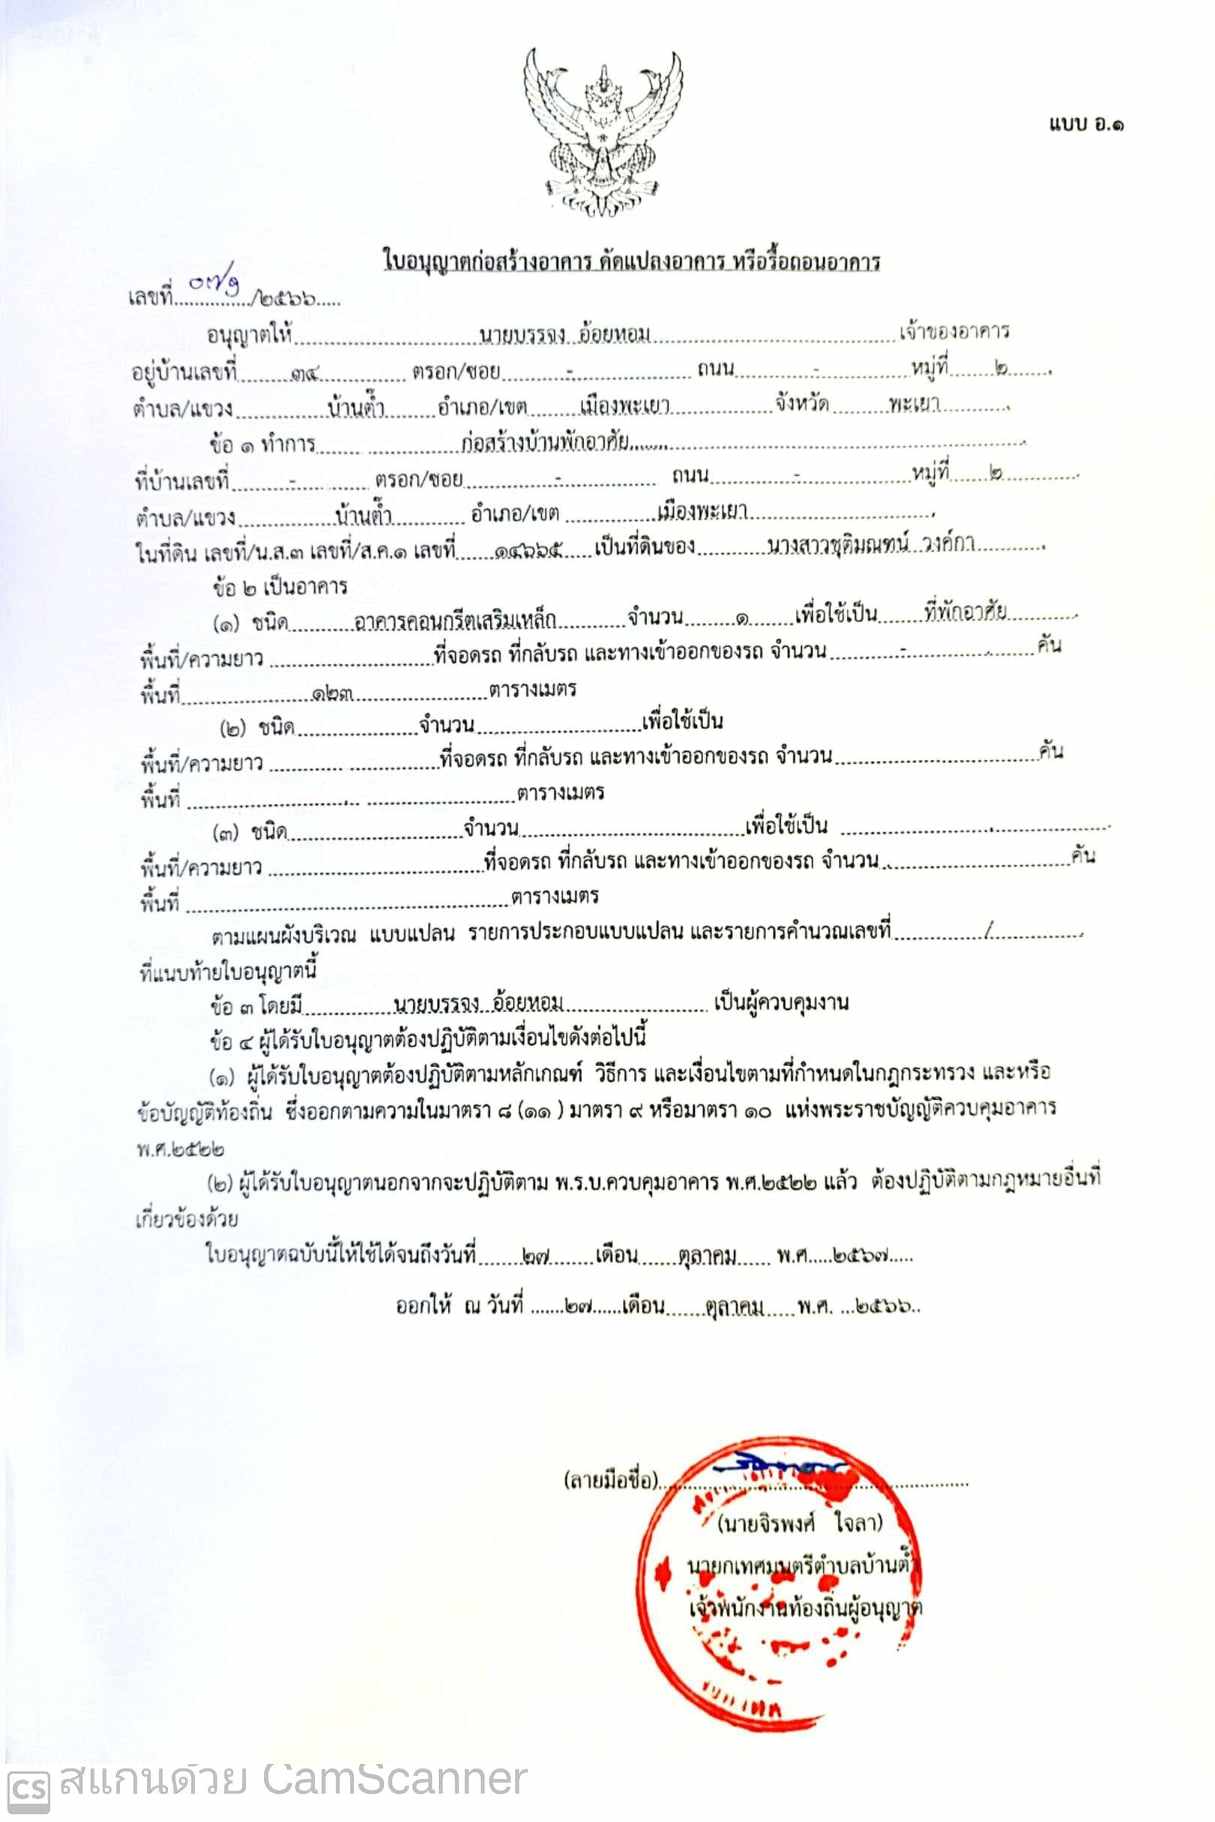 แบบ อ.๑
ใบอนุญาตก่อสร้างอาคาร ดัดแปลงอาคาร หรือรื้อถอนอาคาร
เลขที่...............​/๒๕๖๖.....
อนุญาตให้..........นายบรรจง อ้อยหอม..........เจ้าของอาคาร
อยู่บ้านเลขที่........๓๔........ ตรอก/ซอย........-........ ถนน........-........หมู่ที่.......๒.......
ตำบล/แขวง..........บ้านต๊ำ........อำเภอ/เขต........เมืองพะเยา..........จังหวัด........พะเยา..........
ข้อ ๑ ทำการ..........ก่อสร้างบ้านพักอาศัย..........
ที่บ้านเลขที่........-........ ตรอก/ซอย........-........ ถนน........-........หมู่ที่......๒..........
ตำบล/แขวง..........บ้านต๊ำ.......... อำเภอ/เขต ..........เมืองพะเยา..........
ในที่ดิน เลขที่/น.ส.๓ เลขที่/ส.ค.๑ เลขที่......๑๔๖๖๕.....เป็นที่ดินของ..........นางสาวชุติมณฑน์ วงค์กา..........
ข้อ ๒ เป็นอาคาร
(๑) ชนิด..........อาคารคอนกรีตเสริมเหล็ก..........จำนวน........๑.......เพื่อใช้เป็น.......ที่พักอาศัย..........
พื้นที่/ความยาว ..........ที่จอดรถ ที่กลับรถ และทางเข้าออกของรถ จำนวน..........-..........คัน
พื้นที่..........๑๒๓..........ตารางเมตร
(๒) ชนิด..........จำนวน..........เพื่อใช้เป็น
พื้นที่/ความยาว ..........ที่จอดรถ ที่กลับรถ และทางเข้าออกของรถ จำนวน..........คัน
พื้นที่ ..........ตารางเมตร
(๓) ชนิด..........จำนวน..........เพื่อใช้เป็น ..........
พื้นที่/ความยาว ..........ที่จอดรถ ที่กลับรถ และทางเข้าออกของรถ จำนวน..........คัน
พื้นที่ ..........ตารางเมตร
ตามแผนผังบริเวณ แบบแปลน รายการประกอบแบบแปลน และรายการคำนวณเลขที่........../..........
ที่แนบท้ายใบอนุญาตนี้
ข้อ ๓ โดยมี..........นายบรรจง อ้อยหอม.......... เป็นผู้ควบคุมงาน
ข้อ ๔ ผู้ได้รับใบอนุญาตต้องปฏิบัติตามเงื่อนไขดังต่อไปนี้
(๑) ผู้ได้รับใบอนุญาตต้องปฏิบัติตามหลักเกณฑ์ วิธีการ และเงื่อนไขตามที่กำหนดในกฎกระทรวง และหรือ
ข้อบัญญัติท้องถิ่น ซึ่งออกตามความในมาตรา ๘ (๑๑ ) มาตรา ๙ หรือมาตรา ๑๐ แห่งพระราชบัญญัติควบคุมอาคาร
พ.ศ.๒๕๒๒
(๒) ผู้ได้รับใบอนุญาตนอกจากจะปฏิบัติตาม พ.ร.บ.ควบคุมอาคาร พ.ศ.๒๕๒๒ แล้ว ต้องปฏิบัติตามกฎหมายอื่นที่
เกี่ยวข้องด้วย
ใบอนุญาตฉบับนี้ให้ใช้ได้จนถึงวันที่.......๒๗.......เดือน.......ตุลาคม...... พ.ศ.....๒๕๖๗.....
ออกให้ ณ วันที่ .......๒๗......เดือน.......ตุลาคม.....พ.ศ. ...๒๕๖๖..
(ลายมือชื่อ)..........
(นายจิรพงศ์ ใจลา)
นายกเทศมนตรีตำบลบ้านต๊ำ
เจ้าพนักงานท้องถิ่นผู้อนุญาต
CS สแกนด้วย CamScanner